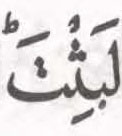 لَبِثْتَؕ